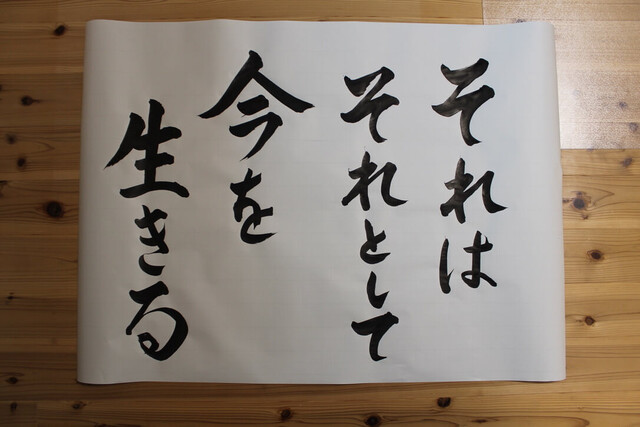 それは
それとして
今を
生きる